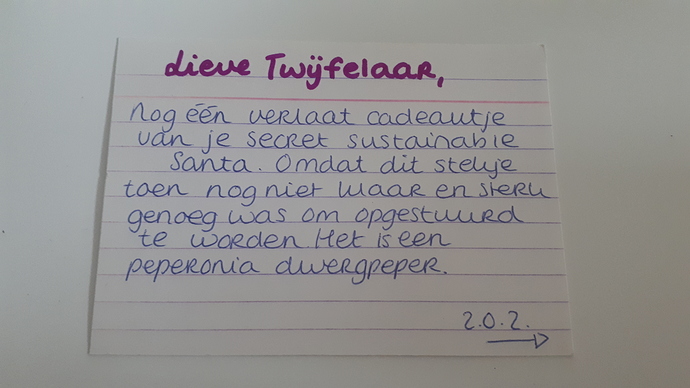 Lieve Twijfelaar,
Nog één verlaat cadeautje
van je secret sustainable
Santa. Omdat dit stekje
toen nog niet klaar en sterk
genoeg was om opgestuurd
te worden. Het is een
peperonia dwergpeper.
z.o.z.